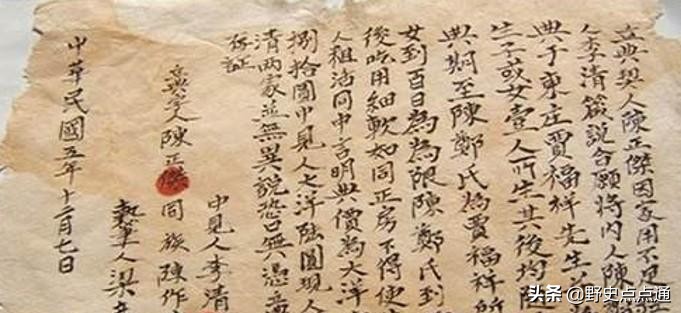 立典契人陳正傑因家用不足
人李清箴説合願将内人陳
典于東庄賈福祥先生
生子或女壹人所生其後均
典期至陳鄭氏為賈福祥所
女到百日為為限陳鄭氏到
後吃用細軟如同正房不得使
人租沾同中言明典價為大洋
捌拾圓中見人大洋陆圓現人
清两家並無異説恐口無憑
存证
中見人李清
立典字人陳正傑 同族陳作
執筆人梁
中華民國五年十二月七日
头条 @野史点点通